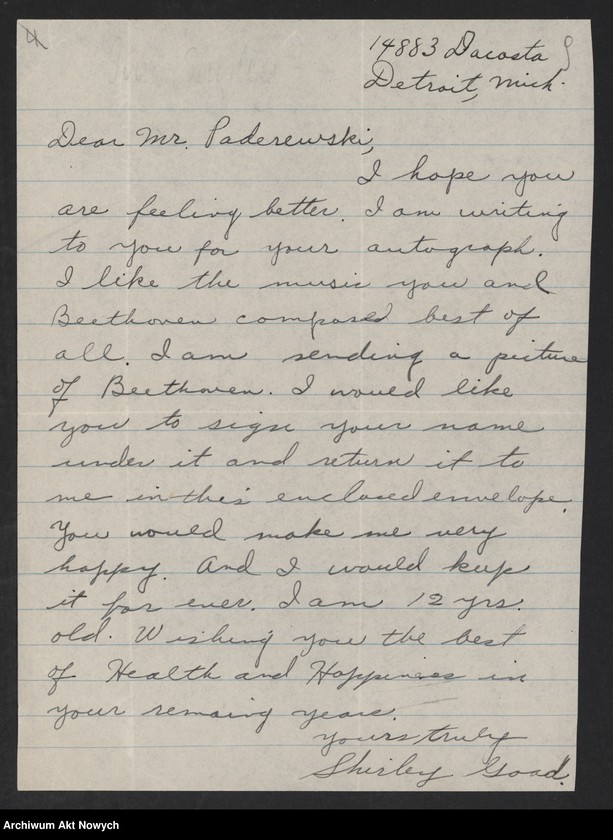 4
14883 Dacosta
Detroit, Mich.
Dear Mr. Paderewski,
I hope you
are feeling better. I am writing
to you for your autograph.
I like the music you and
Beethoven composed best of
all. I am sending a picture
of Beethoven. I would like
you to sign your name
under it and return it to
me in this enclosed envelope.
You would make me very
happy. And I would keep
it for ever. I am 12 yrs.
old. Wishing you the best
of Health and Happiness in
your remaing years.
yours truly
Shirley Good.
Archiwum Akt Nowych